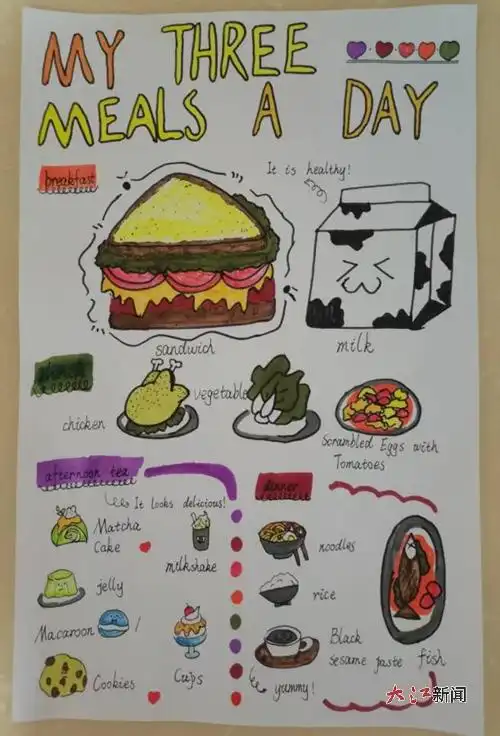 MY THREE
MEALS A DAY
breakfast
It is healthy!
sandwich
milk
chicken
vegetable
Scrambled Eggs with
Tomatoes
afternoon tea
It looks delicious!
Matcha
Cake
milkshake
jelly
Macaroon
Cups
Cookies
dinner
noodles
rice
Black
sesame paste
fish
yummy!
大江新闻